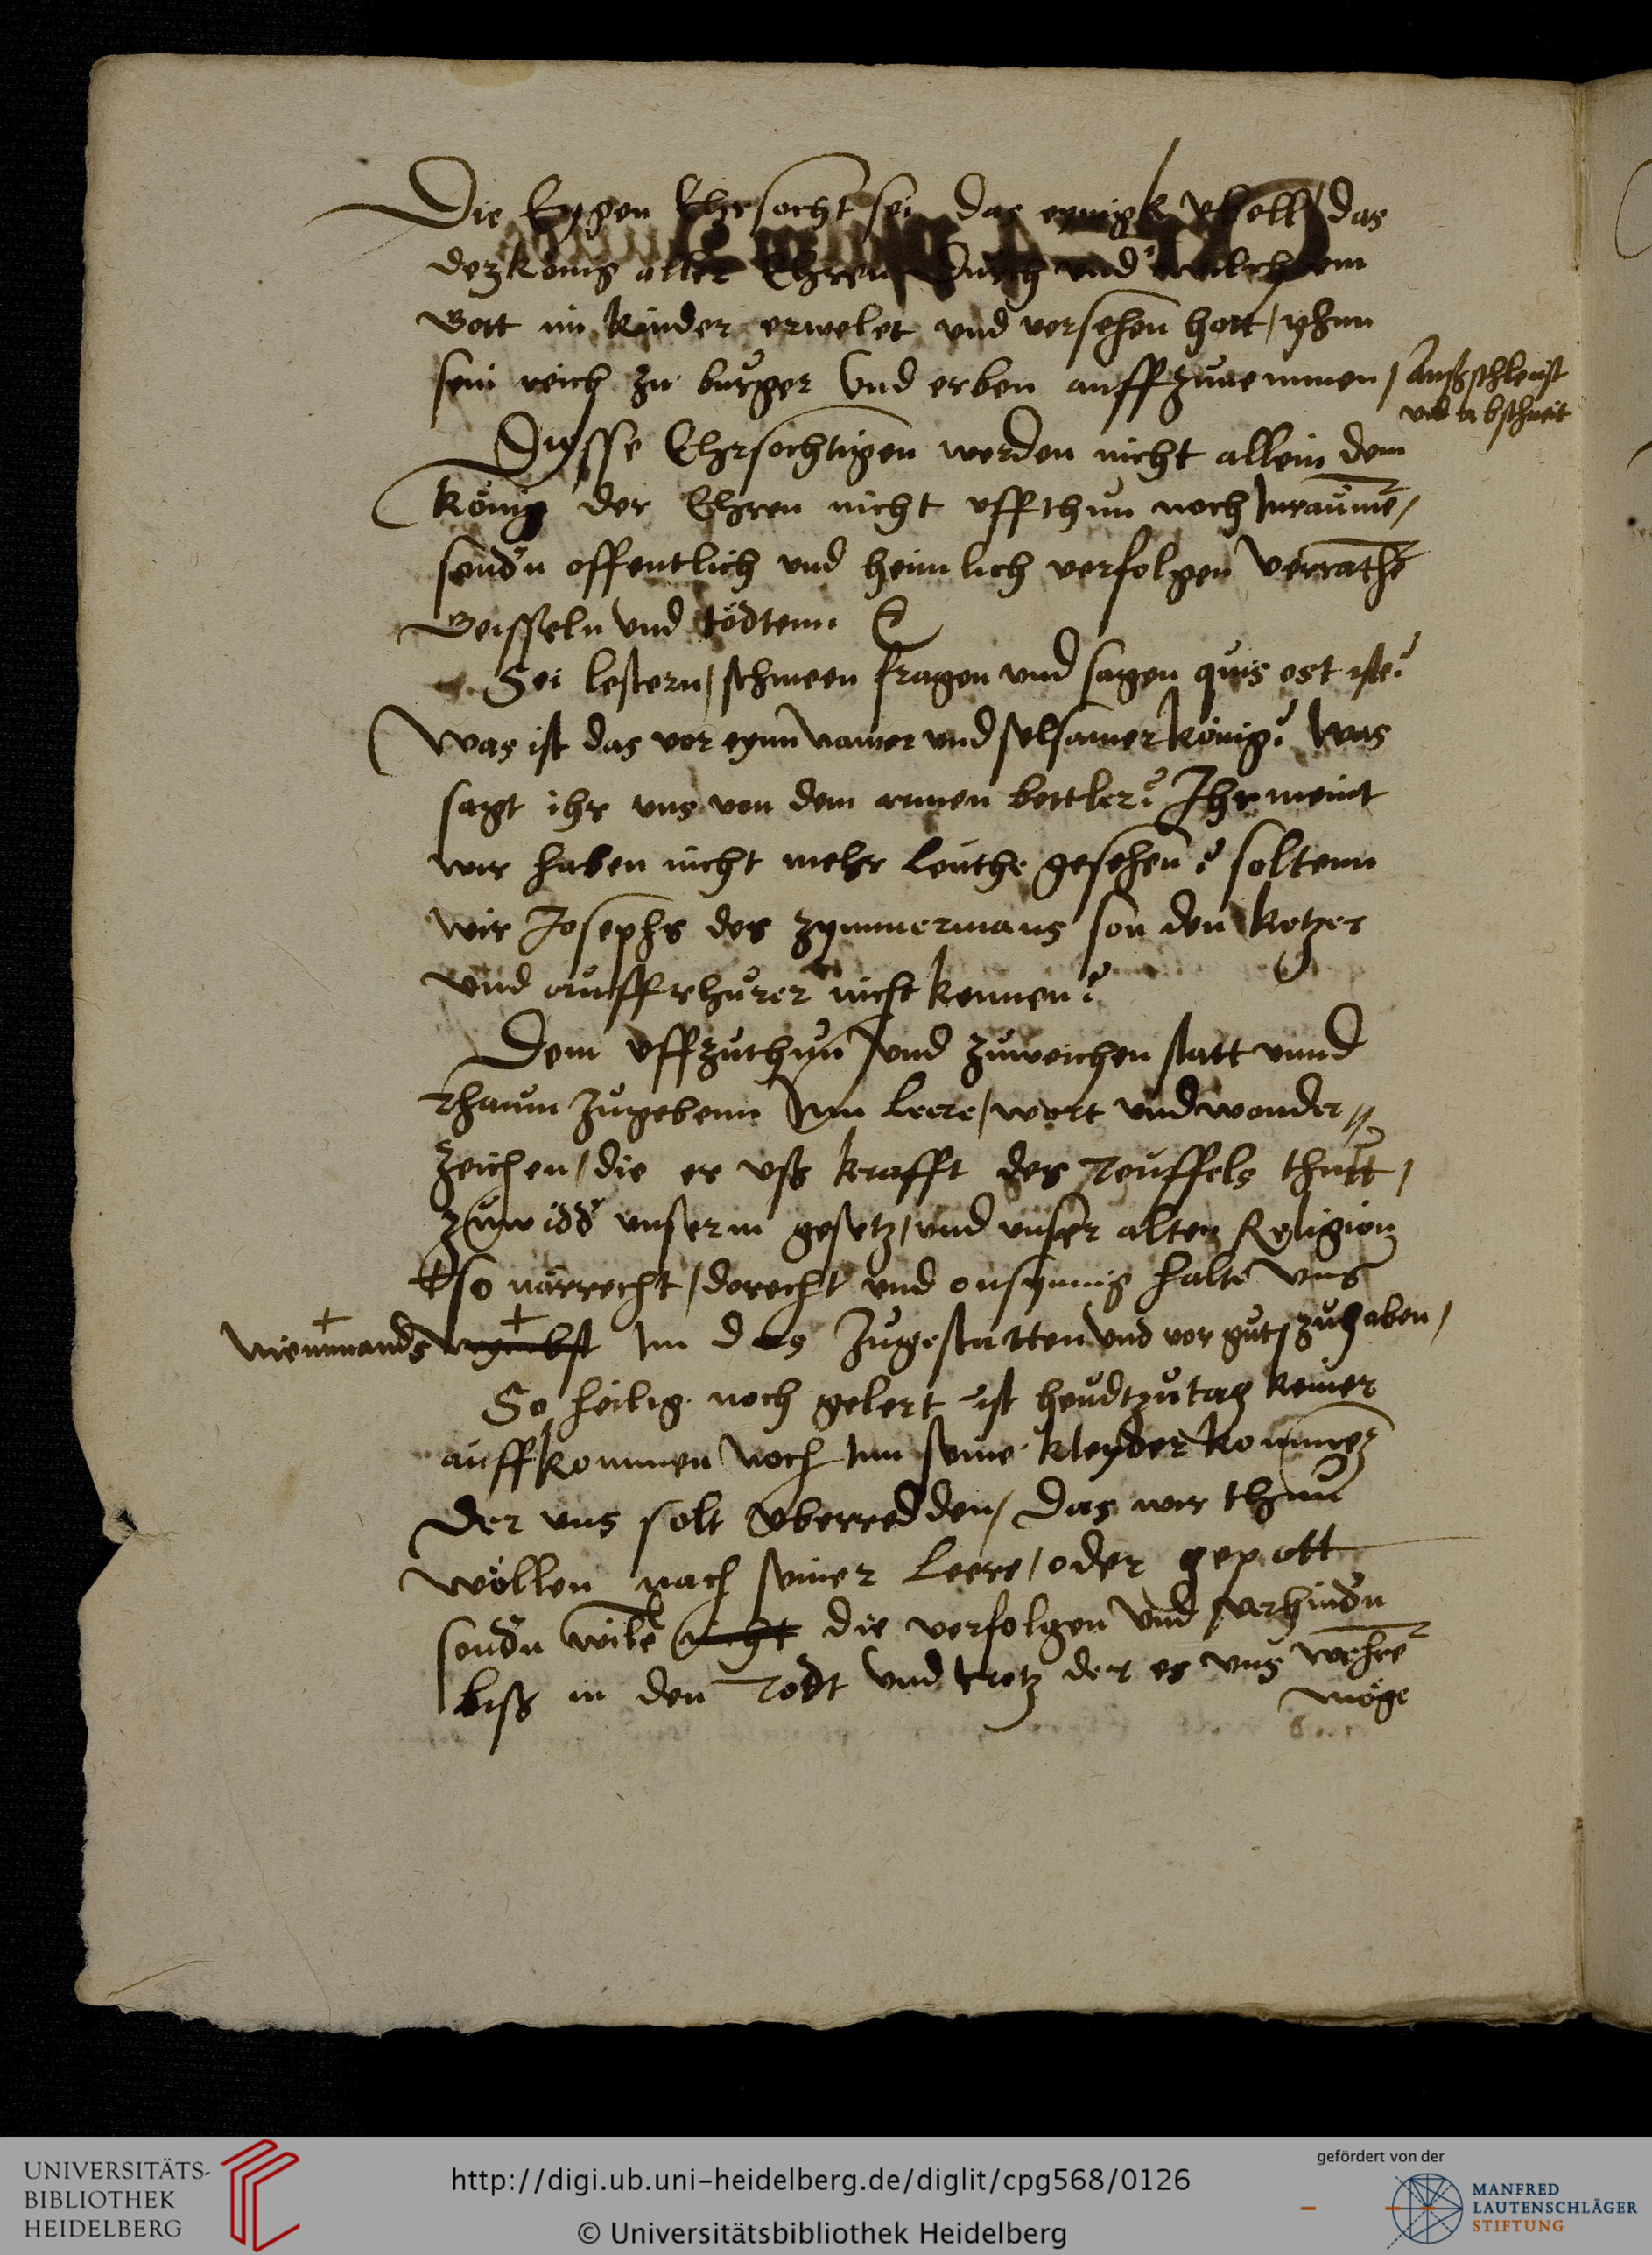 Die Eygen Ehrsocht sei das eynigk vbell / das
der könig aller Ehren durch vnd welchem
Gott im kinder erwelet vnd versehen hott / yhnn
sein reich zu burger vnd erben auffzunemmen / Außschleust
vnd abschneit
Dysse Ehrsochtigen werden nicht allein dem
könig der Ehren nicht vffthun noch Inraumē /
sond'n offentlich vnd heimlich verfolgen verrathē
Geisseln vnd tödtenn
Sei lestern / schmeen fragen vnd sagen quis est iste?
Was ist das vor eynn nawer vnd selsamer könig? Was
sagt ihr vns von dem armen bettler? Ihr meint
wir haben nicht mehr leuthe gesehen? soltenn
wir Josephs des zymmermans son den ketzer
vnd auffrhurer nicht kennen?
Dem vffzuthun / vnd zuweichen statt vnnd
Rhaum zugebenn Inn leere / wort vnd wonder //
zeichen / die er vß krafft des Teuffels thutt /
zuwidd' vnserm gesetz / vnd vnser alten Religion
so närrecht / dorecht vnd onsynnig haltē vns
niemmands Im das zugestatten vnd vor gut zuhaben /
So heilig noch gelert ist heudtzutag keiner
auffkommen noch Inn seine kleyder kommen
Der vns solt vberredden / Das wir thun
wöllen nach seiner leere / oder gepott
sond'n wilē nicht die verfolgen vnd verhind'n
biß in den Todt vnd trotz der es vns wehrē
möge
UNIVERSITÄTS-
BIBLIOTHEK
HEIDELBERG
http://digi.ub.uni-heidelberg.de/diglit/cpg568/0126
© Universitätsbibliothek Heidelberg
gefördert von der
MANFRED
LAUTENSCHLÄGER
STIFTUNG